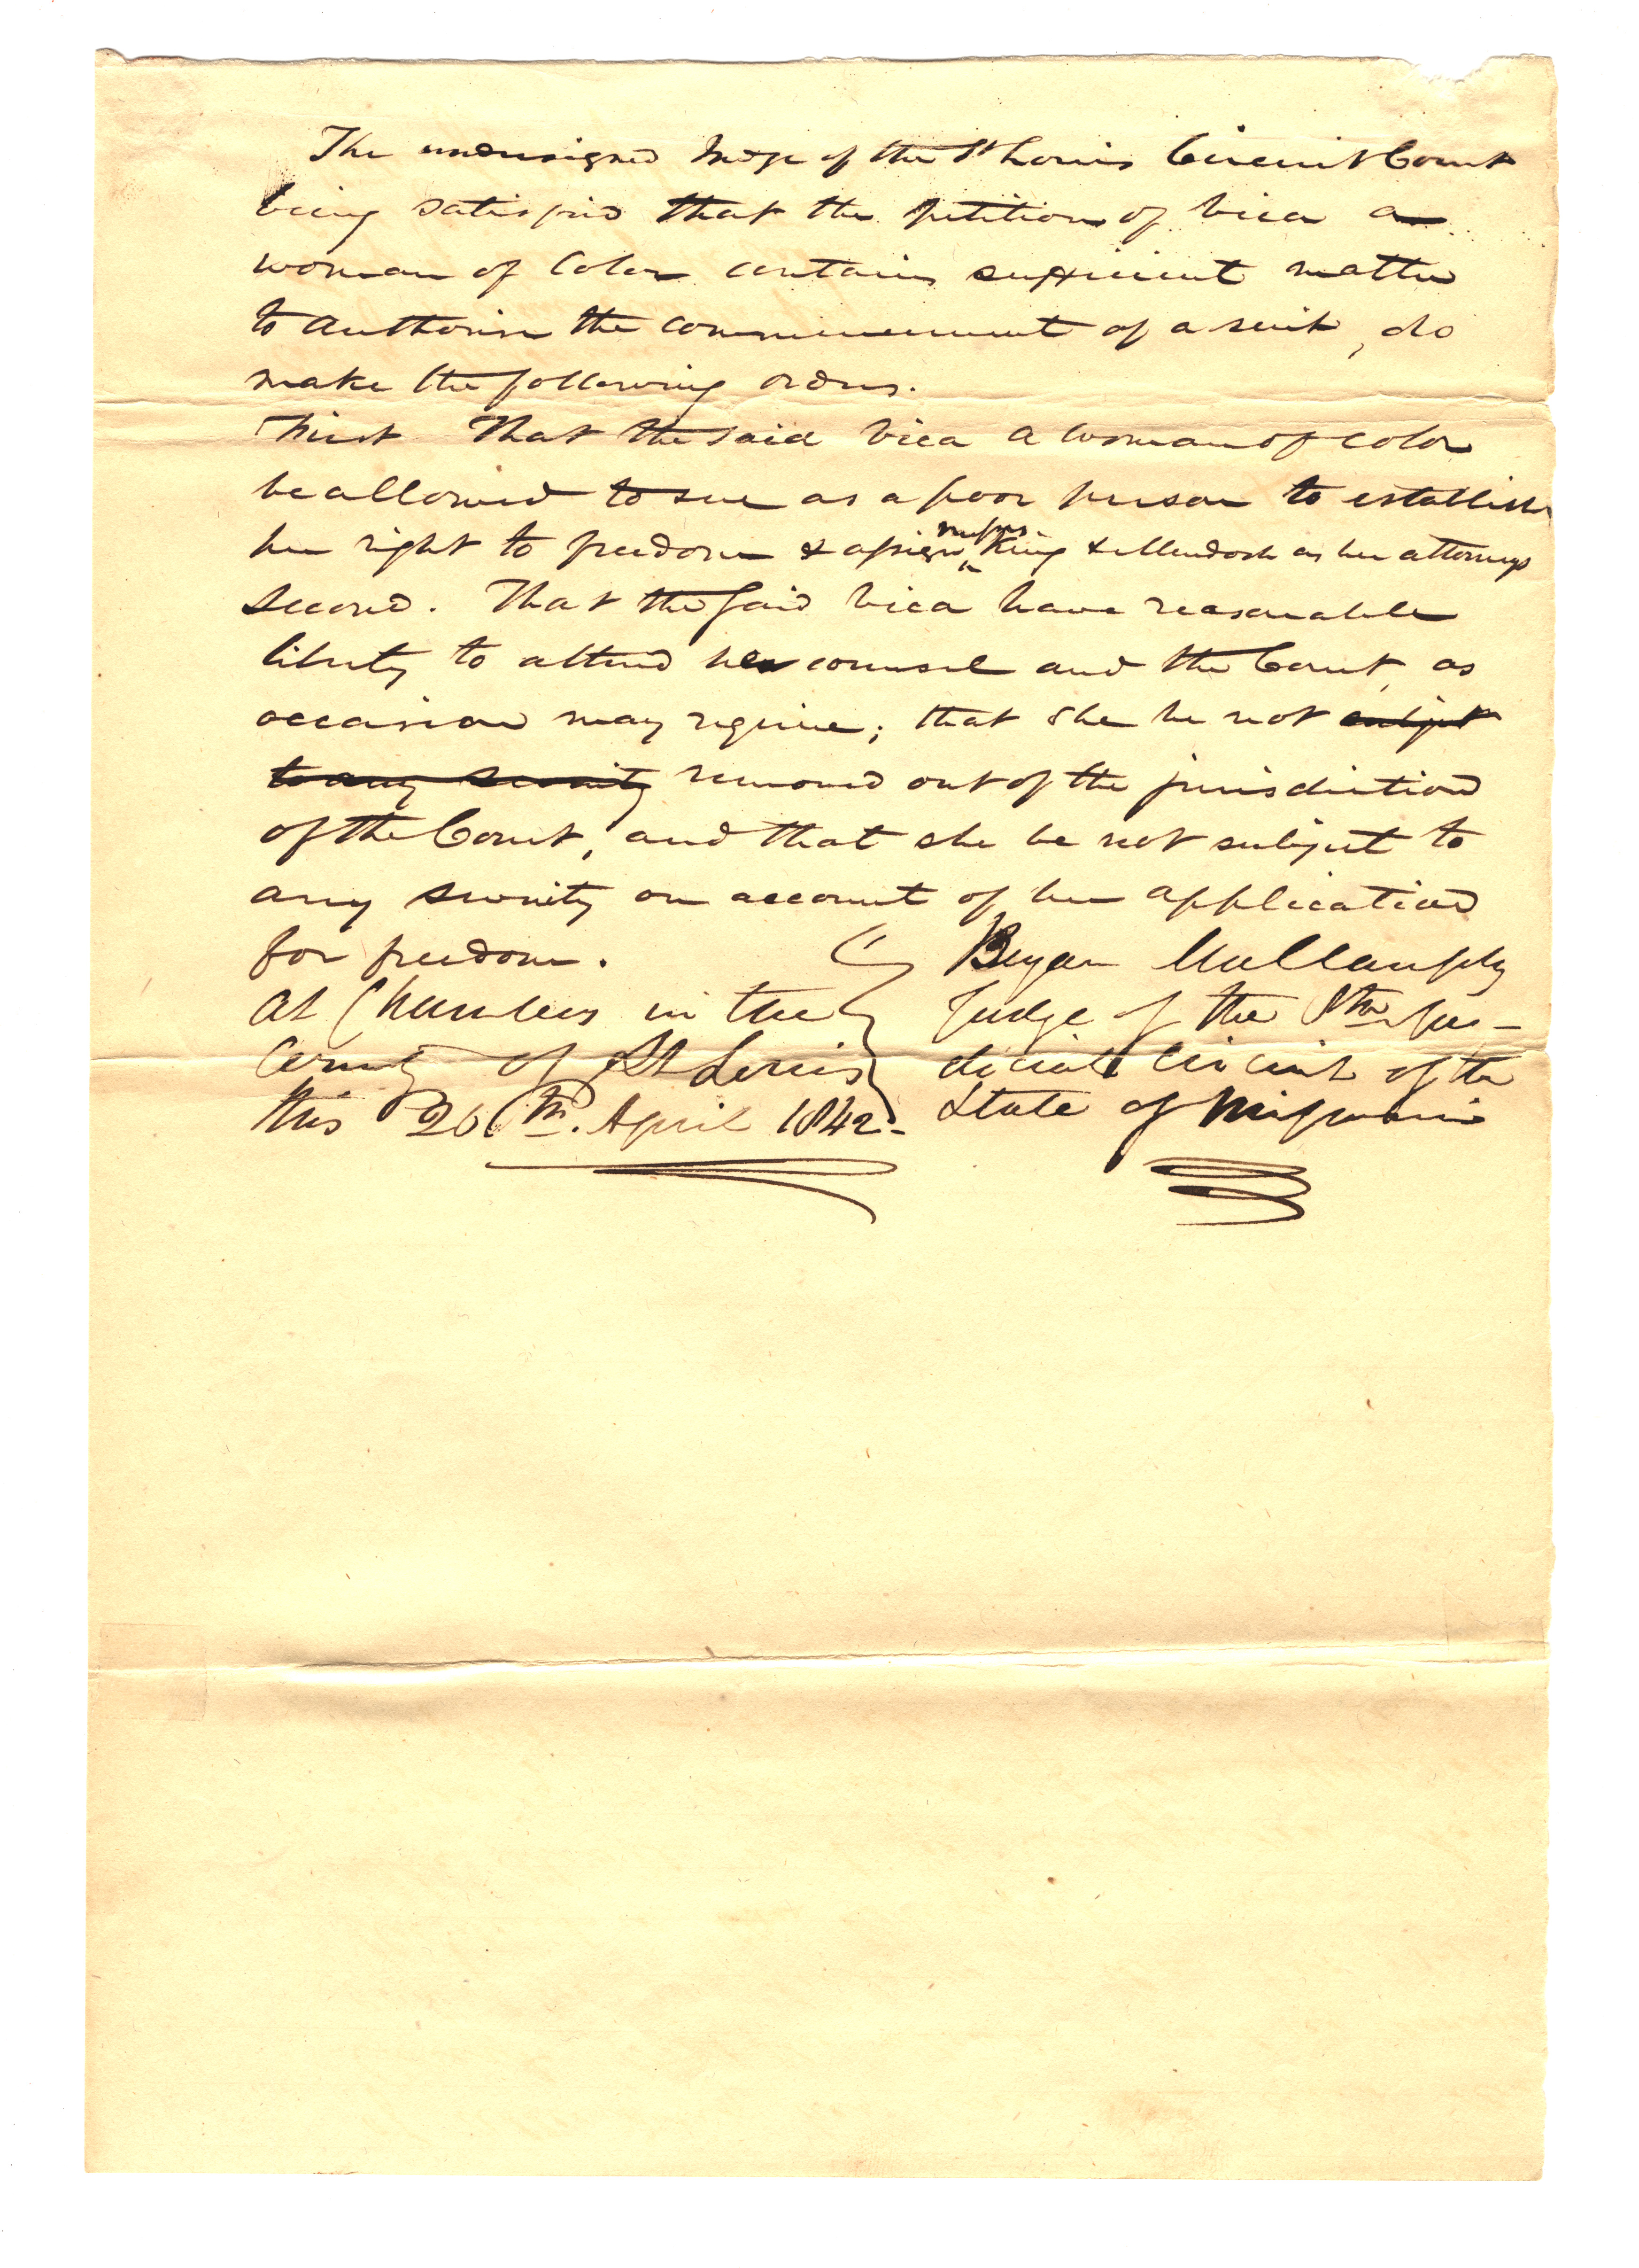 The undersigned Judge of the St Louis Circuit Court
being satisfied that the petition of Vica a
woman of Color contains sufficient matter
to authorise the commencement of a suit, do
make the following orders.
First That the said Vica a woman of color
be allowed to sue as a poor person to establish
her right to freedom & assign messrs. King & as her attorneys
second. That the said Vica have reasonable
liberty to attend her counsel and the Court, as
occasion may require; that she be not subject
to any security removed out of the jurisdiction
of the Court, and that she be not subject to
any severity on account of her application
for freedom.
Bryan Mullanphy
At Chambers in the
Judge of the 8th Ju-
County of St Louis
dicial Circuit of the
this 26th. April 1842-
State of Missouri